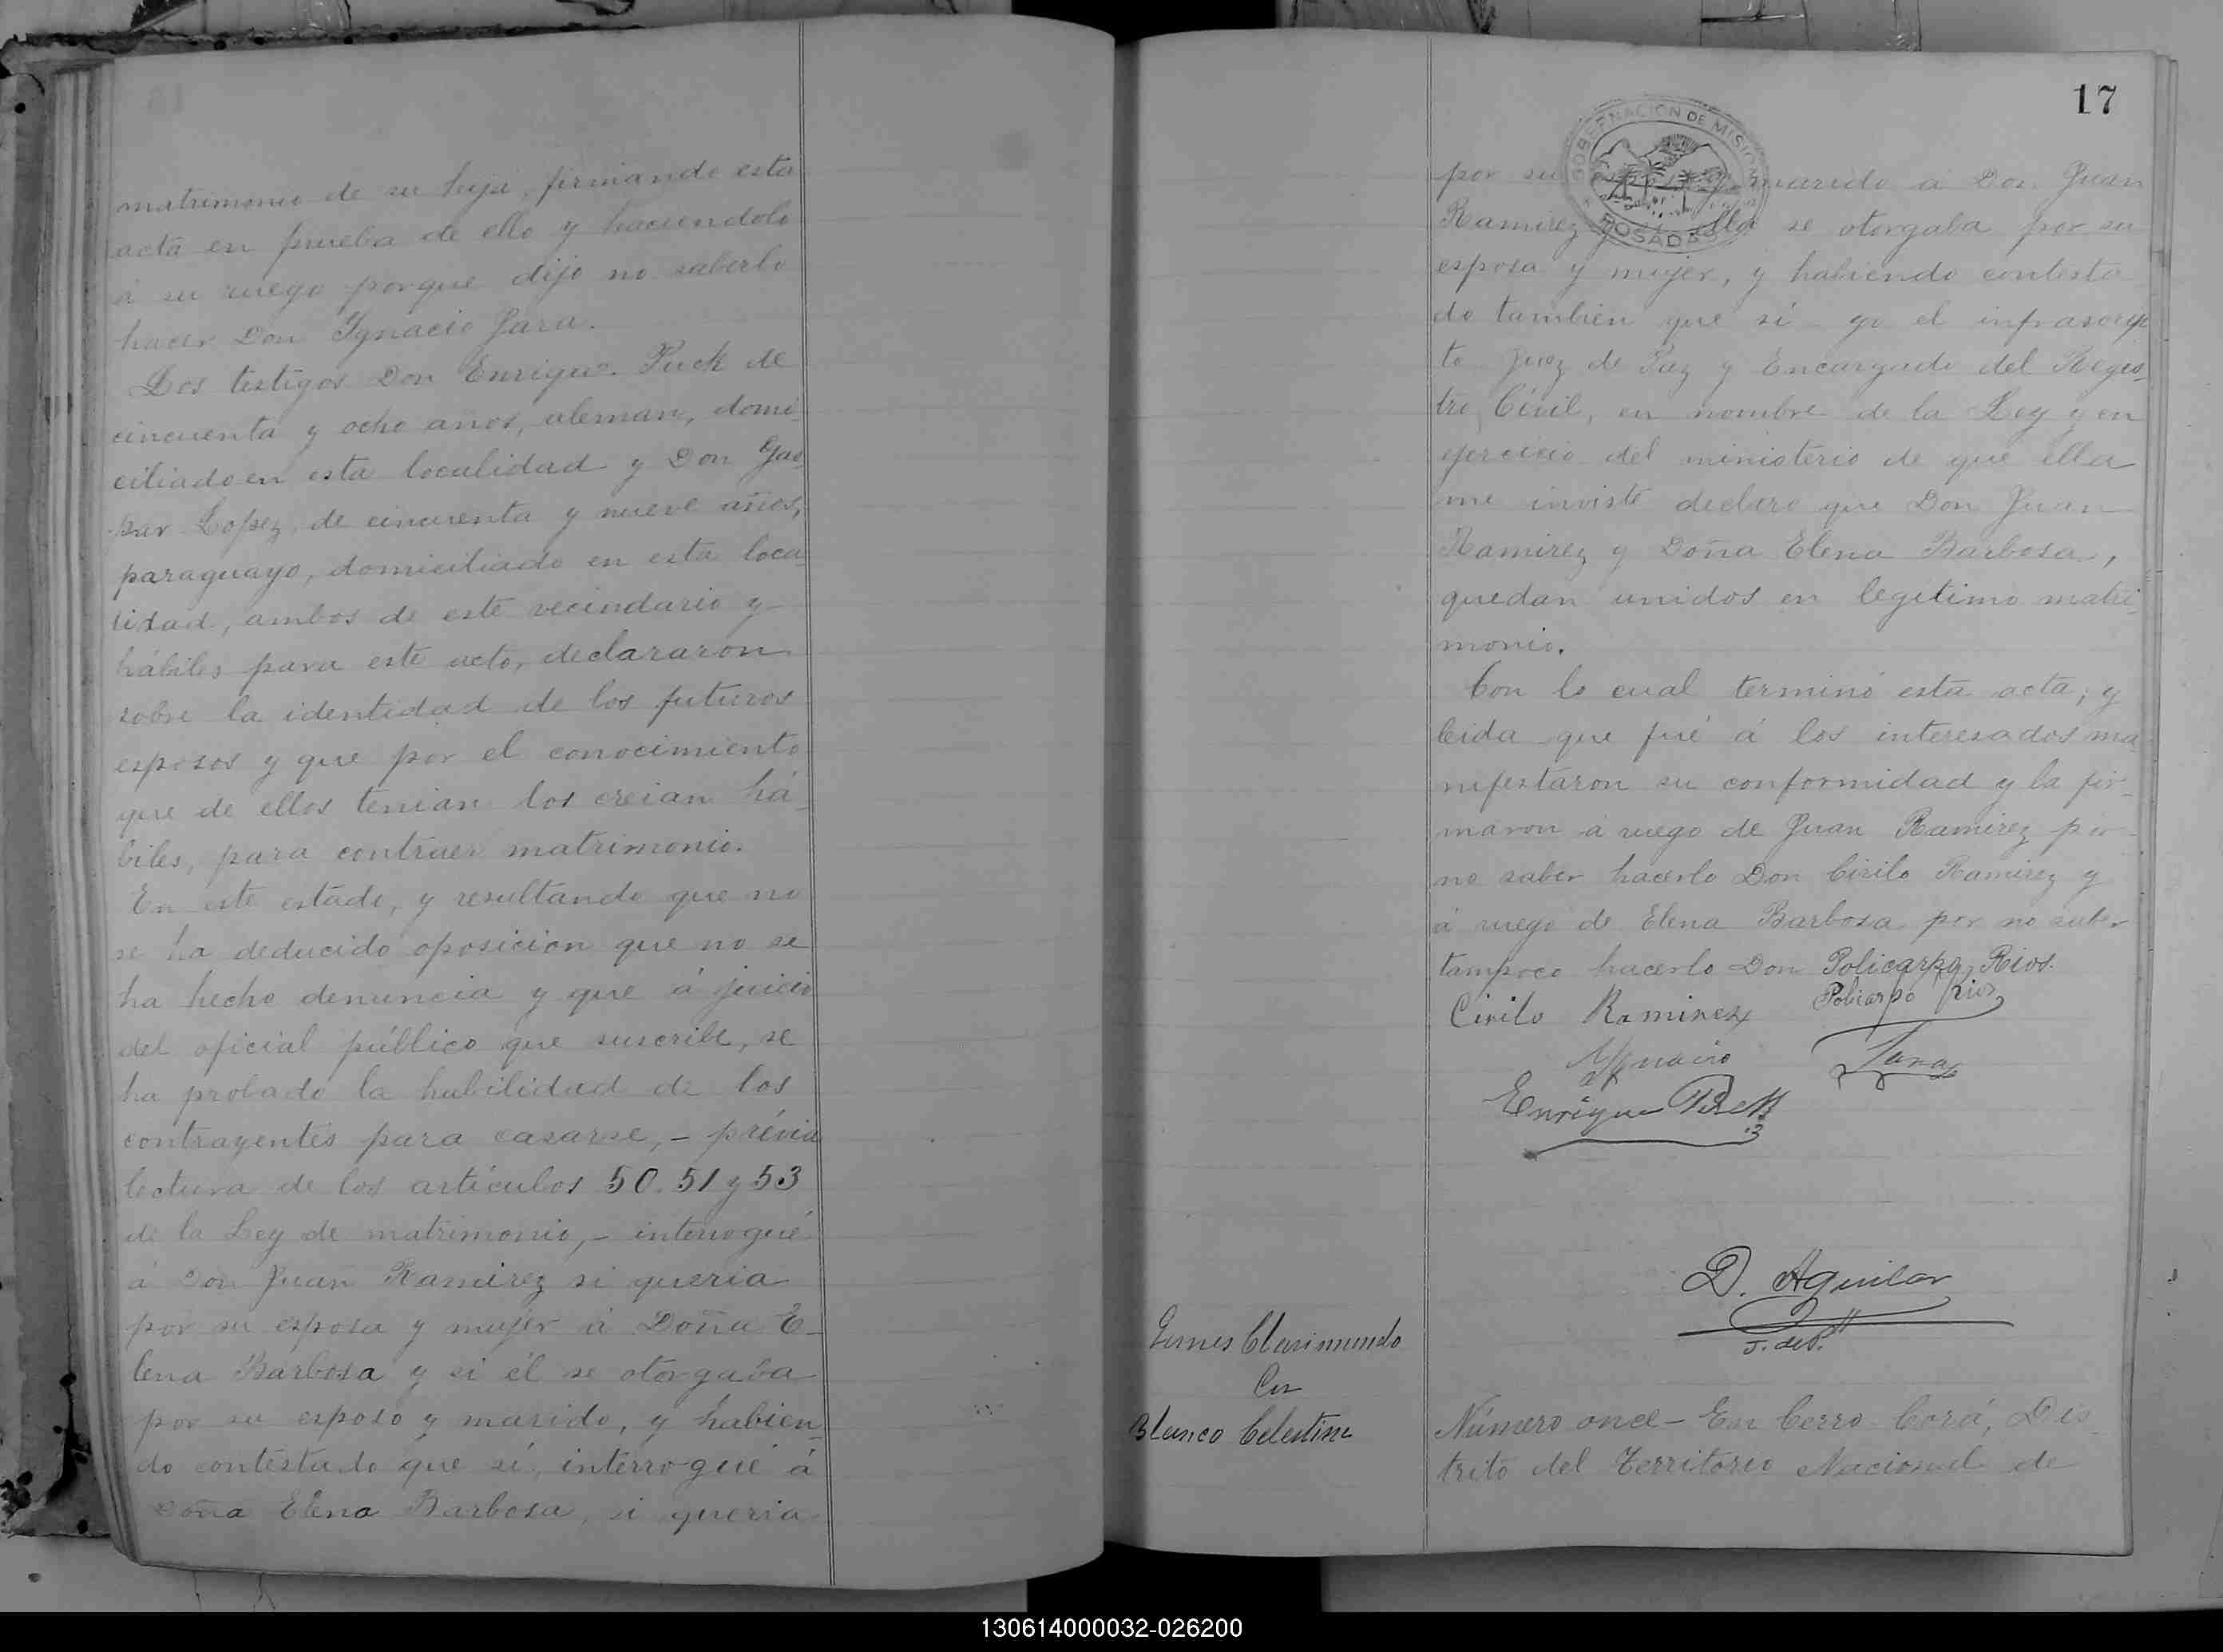 matrimonio de su hija, firmando esta
acta en prueba de ello y haciendolo
á su ruego porque dijo no saberlo
hacer Don Ygnacio Jara.
Los testigos Don Enrique Puck de
cincuenta y ocho años, aleman, domi-
ciliado en esta localidad y Don Gas-
par Lopez, de cincuenta y nueve años,
paraguayo, domiciliado en esta loca-
lidad, ambos de este vecindario y
hábiles para este acto, declararon
sobre la identidad de los futuros
esposos y que por el conocimiento
que de ellos tenian los creian há-
biles, para contraer matrimonio.
En este estado, y resultando que no
se ha deducido oposicion que no se
ha hecho denuncia y que á juicio
del oficial público que suscribe, se
ha probado la habilidad de los
contrayentes para casarse, - prévia
lectura de los artículos 50. 51 y 53
de la Ley de matrimonio, - interrogué
á Don Juan Ramirez si queria
por su esposa y mujer á Doña E-
lena Barbosa y si él se otorgaba
por su esposo y marido, y habien-
do contestado que sí, interrogué á
Doña Elena Barbosa, si queria
17
GOBERNACION DE MISIONES
POSADAS
por su marido a Don Juan
Ramirez ella se otorgaba por su
esposa y mujer, y habiendo contesta-
do tambien que sí - yo el infrascrip-
to Juez de Paz y Encargado del Regis-
tro Civil, en nombre de la Ley y en
ejercicio del ministerio de que ella
me inviste declaro que Don Juan
Ramirez y Doña Elena Barbosa,
quedan unidos en legitimo matri-
monio.
Con lo cual terminó esta acta; y
leida que fué á los interesados ma-
nifestaron su conformidad y la fir-
maron á ruego de Juan Ramirez por
no saber hacerlo Don Cirilo Ramirez y
á ruego de Elena Barbosa por no saber
tampoco hacerlo Don Policarpo Rios.
Cirilo Ramirez Policarpo rios
Ygnacio Jara
Enrique Puck
D. Aguilar
J. de P.
Gomes Clarimundo
Con
Blanco Celestina
Número once - En Cerro Corá, Dis-
trito del Territorio Nacional de
130614000032-026200